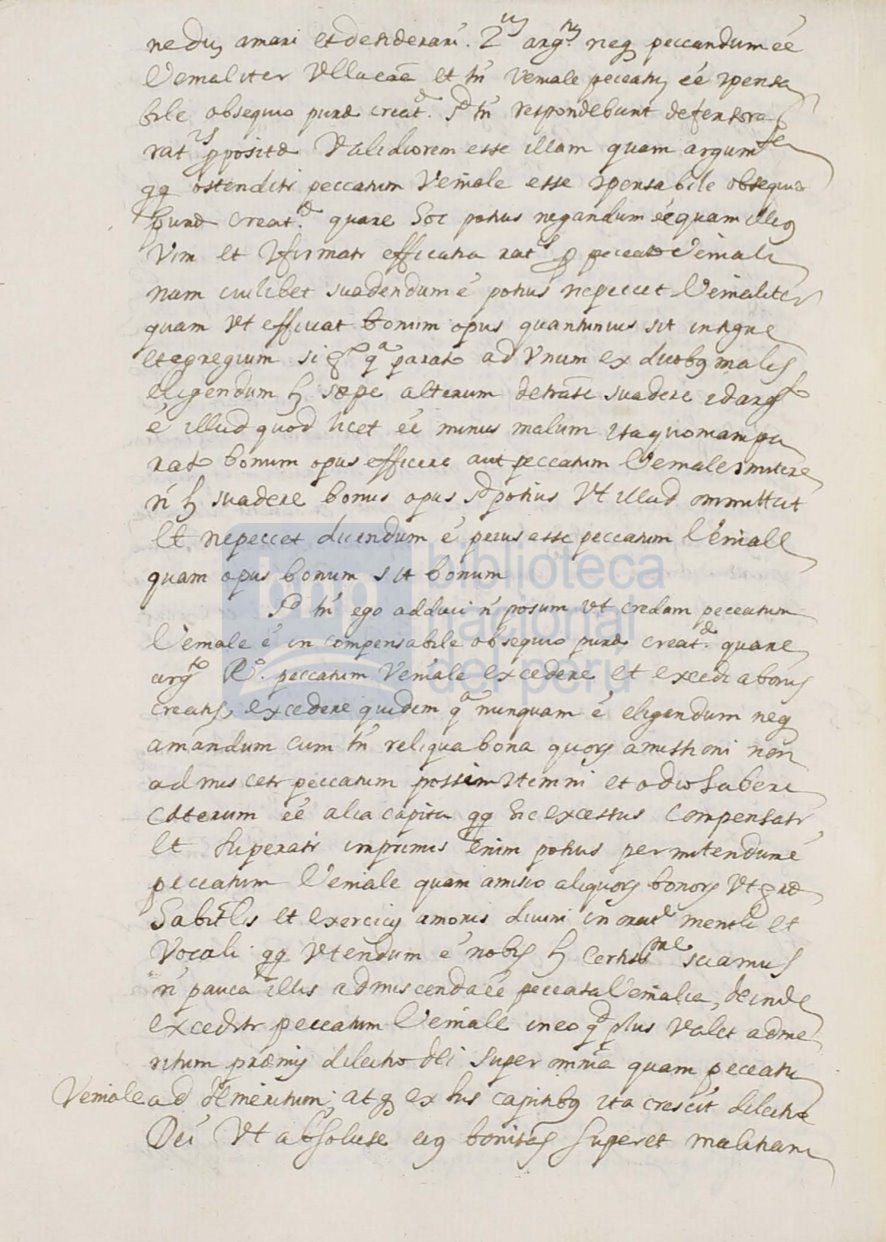 nedũ amari et desiderari. 2us argr neq peccandum ée
Vemaliter Vlla eãe et tń Veniale peccatũ ée
bile obsequio puræ creatæ. sd tń respondebunt defensora
ratis pposite Validiorem esse illam quam argum
qq ostenditr peccatum Veniale esse obsequio
puræ creatæ. quare hoc potius negandum ée quam illiq
Vim et efficatia ratis peccato Veniali
nam cuilibet suadendum é potius ne peccet Venialiter
quam Vt efficiat bonum opus quantumuis sit insigne
et egregium si qa parato ad Vnum ex duobq malis
eligendum sæpe alterum suadere id argto
é illud quod licet ée minus malum ita quoniam pa
rato bonum opus efficere aut peccatum Veniale
suadere bonus opus sd potius Vt illud ommittat
Et ne peccet dicendum é peius esse peccatum Veniale
quam opus bonum sit bonum
Sd tń ego adduci ń posum vt credam peccatum
Veniale é in compensabile obsequio puræ creatæ. quare
argto Ro. peccatum Veniale excedere et excedi a bonis
creatis, excedere quidem qa nunquam é eligendum neq
amandum cum tń reliqua bona quorũ amissioni non
admiscetr peccatum possint temni et odio haberi
Cæterum ée alia capita qq hic excessus compensatr
Et superatr imprimis enim potius permitendum é
peccatum Veniale quam amisio aliquorũ bonorũ Vt
habitũs et exercicij amoris diuini in orate mentli et
Vocali qq Vtendum é nobis certissme sciamus
ń pauca illis admiscenda ée peccata Venialia, deinde
Exceditr peccatum Veniale in eo qd plus Valet ad me
ritum præmij dilectio dei super omnia quam peccatũ
Veniale ad démeritum; atq ex his capitibq ita crescit dilectio
Dei Vt absoluté eiq bonitas superet malitiam